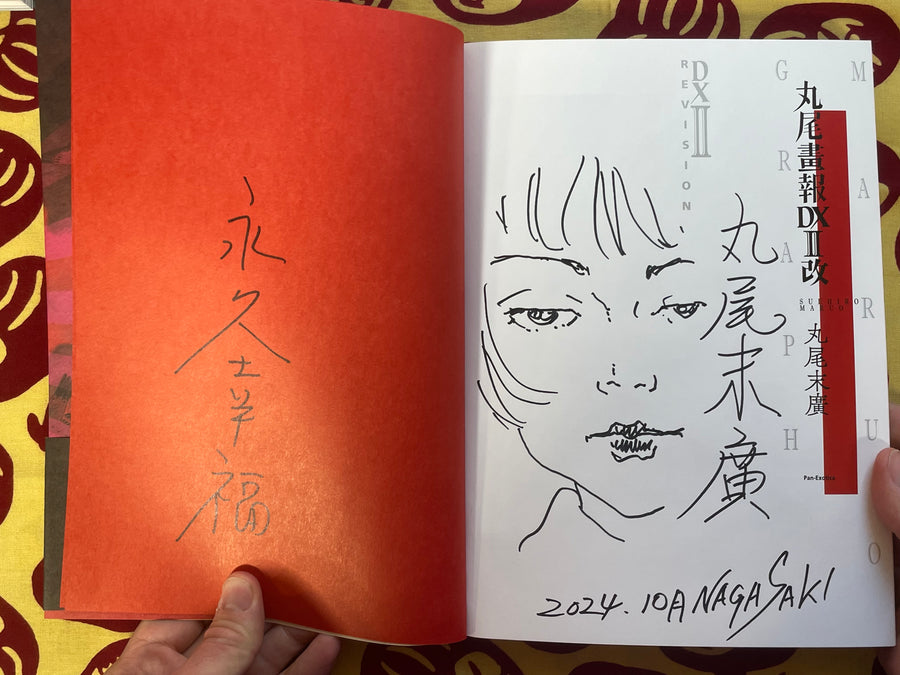 永久幸福
丸尾畫報DXⅡ改
SUEHIRO
MARUO
丸尾末廣
MARUO
GRAPH
DXⅡ
REVISION
Pan-Exotica
丸尾末廣
2024.10A NAGASAKI